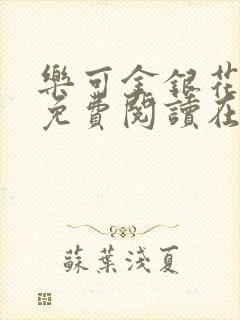 樂可金銀花
免費閱讀在
蘇葉淺夏